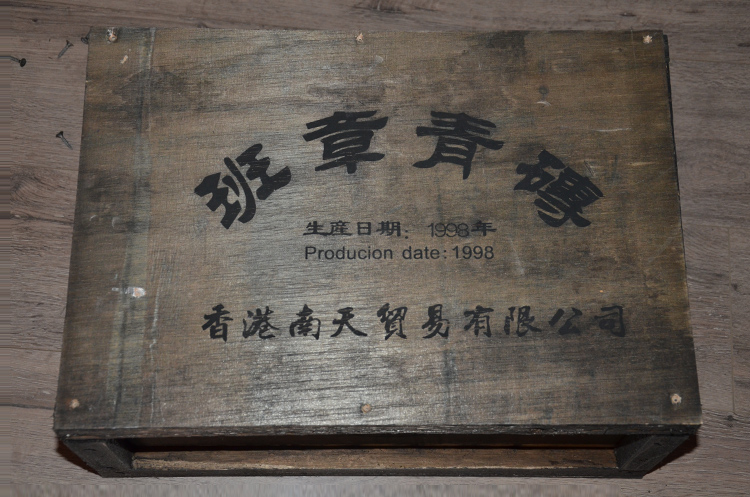 班章青磚
生産日期: 1998年
Producion date: 1998
香港南天貿易有限公司